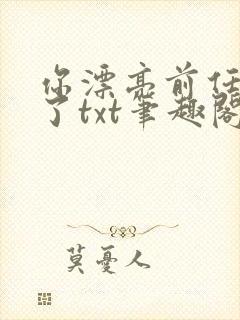 你漂亮前任
了txt笔趣阁
莫忧人